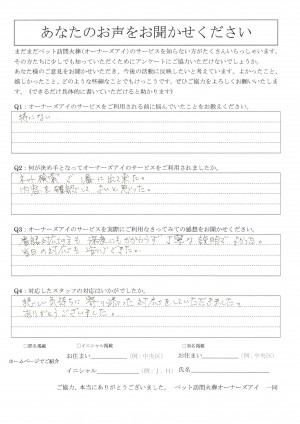 あなたのお声をお聞かせください
まだまだペット訪問火葬(オーナーズアイ)のサービスを知らない方がたくさんいらっしゃいます。
その方たちに少しでも知っていただくためにアンケートにご協力いただけないでしょうか。
あなた様のご意見をお聞かせいただき、今後の活動に反映したいと考えています。よかったこと、
嬉しかったこと、どのような些細なことでもけっこうです。ぜひご協力をよろしくお願いいたします。
(できるだけ具体的に書いていただけると助かります)
Q1:オーナーズアイのサービスをご利用される前に悩んでいたことをお教えください。
特にない
Q2:何が決め手となってオーナーズアイのサービスをご利用されましたか。
ネット検索で
内容を確認して よいと思った。
Q3:オーナーズアイのサービスを実際にご利用なさってみての感想をお聞かせください。
電話対応も 深夜にもかかわらず 丁寧な説明で よかった。
当日の対応も
Q4:対応したスタッフの対応はいかがでしたか。
悲しい気持ちに 寄り添った 対応をしていただきました。
ありがとうございました。
□匿名掲載 □イニシャル掲載 □実名掲載
ホームページでご紹介
お住まい (例:中央区) お住まい (例:中央区)
イニシャル (例:J.H) 氏名
ご協力、本当にありがとうございました。 ペット訪問火葬オーナーズアイ 一同